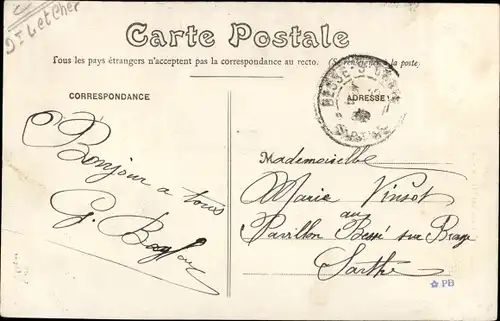 Dr Letcher
Carte Postale
Tous les pays étrangers n'acceptent pas la correspondance au recto. (Se renseigner à la poste)
CORRESPONDANCE
ADRESSE
BESSE-S-BRAYE
SARTHE
Bonjour a tous
G.
Mademoiselle
Marie Vinsot
au
Pavillon Bessé sur Braye
Sarthe
PB